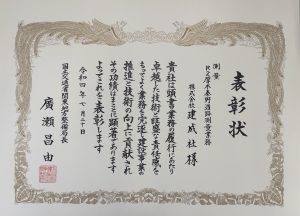 表彰状
測量
R2厚木秦野道路測量業務
株式会社 建成社 様
貴社は頭書業務の履行にあたり
卓越した技術と旺盛な責任感を
もってよく業務を完遂し建設事業の
推進と技術の向上に貢献され
その功績はまことに顕著であります
よってこれを表彰します
令和四年七月二十日
国土交通省関東地方整備局長
廣瀬昌由